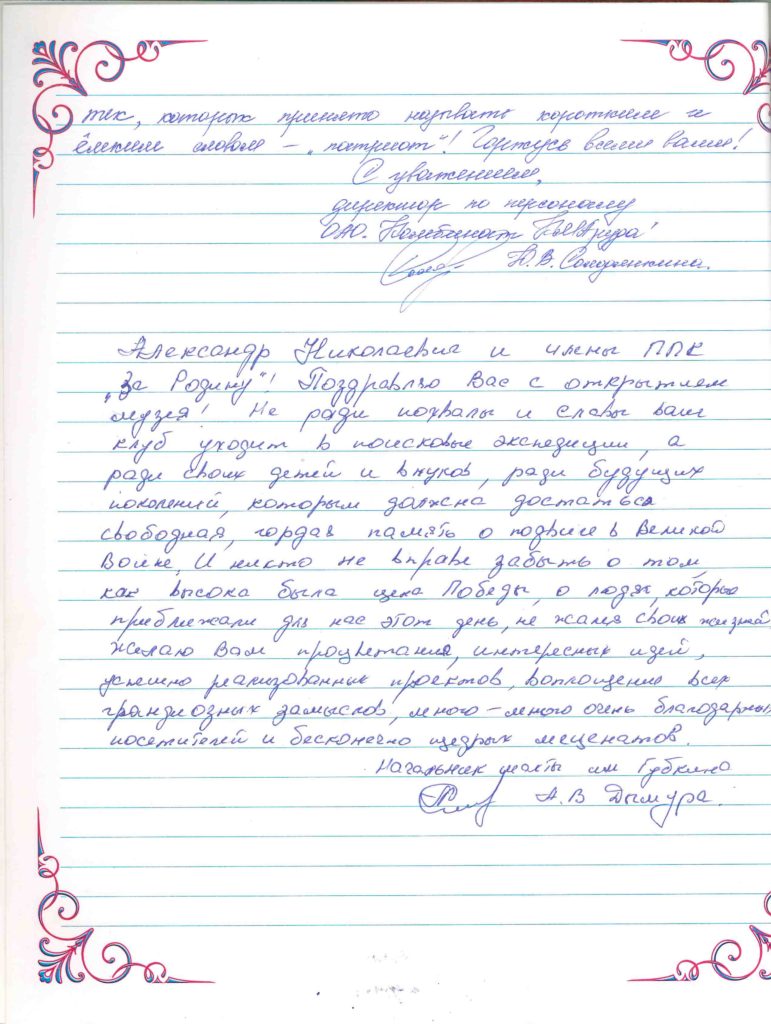 тех, которых принято называть коротким и
ёмким словом – „патриот“! Горжусь всеми вами!
С уважением,
директор по персоналу
ОАО „Комбинат КМАруда“
Ю.В.
Александр Николаевич и члены ППК
„За Родину“! Поздравляю Вас с открытием
музея! Не ради похвалы и славы ваш
клуб уходит в поисковые экспедиции, а
ради своих детей и внуков, ради будущих
поколений, которым должна достаться
свободная, гордая память о подвиге в Великой
Войне. И никто не вправе забыть о том,
как высока была цена Победы, о людях, которые
приближали для нас этот день, не жалея своих жизней
Желаю Вам процветания, интересных идей,
успешно реализованных проектов, воплощения всех
грандиозных замыслов, много-много очень благодарных
посетителей и бесконечно щедрых меценатов.
Начальник шахты им Губкина
А.В Дымура.